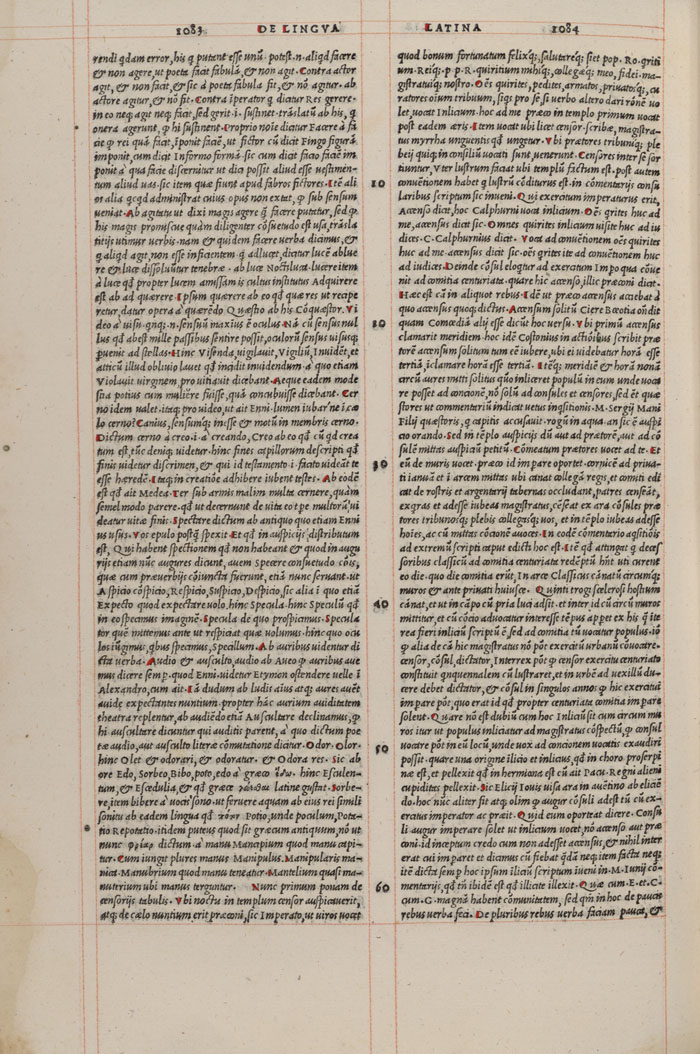 1083 DE LINGVA
rendi qdam error, his q putant esse unũ. potest.n.aliqd facere
& non agere, ut poeta facit fabulã, & non agit. Contra actor
agit, & non facit, & sic à poeta fabula fit, & nõ agitur. ab
actore agitur, & nõ fit. Contra ĩperator q dicitur Res gerere.
in eo neq; agit neq; facit, sed gerit.i.sustinet. trãslatũ ab his, q
onera agerunt, ꝙ hi sustinent. Proprio noĩe dicitur Facere à fa
cie ꝙ rei quã facit, ĩponit faciẽ, ut fictor cũ dicit Fingo figurã
imponit, cum dicit Informo formã. sic cum dicit facio faciẽ im
ponit à qua facie discernitur ut dici possit aliud esse uestimen-
tum aliud uas. sic item quæ fiunt apud fabros fictores. Itẽ ali
os alia qcqd administrat cuius opus non extat, ꝙ sub sensum
ueniat. Ab agitatu ut dixi magis agere ꝙ̃ facere putatur, sed ꝙ
his magis promiscue quàm diligenter cõsuetudo est usa, trãsla
titijs utimur uerbis. nam & quidem facere verba dicimus, &
q aliqd agit, non esse inficientem. q adlucet, dicitur lucẽ ablue
re & luce dissoluuntur tenebræ. ab luce Noctiluca. luere item
à luce qd propter lucem amissam is cultus institutus Adquirere
est ab ad quærere. Ipsum quærere ab eo qd quæ res ut recipe
retur, datur opera à quærẽdo Quæstio ab his Coquæstor. Vi
deo à uisu. qnq;.n.sensuũ maxĩus ẽ oculus. Nã cũ sensus nul
lus qd abest mille passibus sentire possit, oculorũ sensus uisusq;
puenit ad stellas. Hinc Visenda, uigilauit, Vigiliũ, Inuidẽt, et
atticũ illud obliuio lauet qd incidit inuidendum. à quo etiam
Violauit uirginem, pro uitiauit dicebant. Aeque eadem mode
stia potius cum muliere fuisse, quã concubuisse dicebant. Cer
no idem ualet. itaq; pro uideo, ut ait Enni. lumen iubar ne ĩ cœ
lo cerno? Canius, sensumq; inesse & motũ in membris cerno.
Dictum cerno à creo.i.à creando, Creo ab eo qd cũ qd crea
tum est, tũc deniq; uidetur. hinc fines capillorum descripti qd
finis uidetur discrimen, & qui id testamento .i.facito uideãt te
esse hæredẽ. Itaq; in creatiõe adhibere iubent testes. Ab eodẽ
est qd ait Medea. Ter sub armis malim multa cernere, quàm
semel modo parere. qd ut decernunt de uita eo tẽpe multorũ ui
deatur uitæ finis. Spectare dictum ab antiquo quo etiam Enni
us usus. Vos epulo postq̃ spexit. Et qd in auspicijs distributum
est, Qui habent spectionem qui non habeant & quod in augu
rijs etiam nũc augures dicunt, auem Specere consuetudo cõis,
quæ cum præuerbijs cõiuncta fuerunt, etiã nunc seruant. ut
Aspicio cõspicio, Respicio, Suspicio, Despicio, sic alia ĩ quo etiã
Expecto quod expectare uolo. hinc Specula. hinc Speculũ qd
in eo specimus imaginẽ. Specula de quo prospicimus. Specula
tor quẽ mittemus ante ut respiciat quæ uolumus. hinc quo ocu
los iũgimus, qbus specimus, Specillum. Ab auribus uidentur di
cta uerba. Audio & ausculto, audio ab Aueo ꝙ auribus aue
mus dicere semp. quod Enni. uidentur Etymon ostendere uelle ĩ
Alexandro, cum ait. Iã dudum ab ludis aĩus atq; aures auẽt
auide expectantes nuntium. propter hãc aurium auiditatem
theatra replentur, ab audiẽdo etiã Auscultare declinamus, ꝙ
hi auscultare dicuntur qui auditis parent, à quo dictum poe
tæ audio, aut ausculto literæ cõmutatione dicitur. Odor. Olor.
hinc Olet & odorari, & odoratur. & Odora res. Sic ab
ore Edo, Sorbeo, Bibo, poto, edo à græco ἔδω. hinc Esculen-
tum, & Escædulia, & qd græce γεύεται latine gustat. Sorbe-
re, item bibere à uocis sono. ut feruere aquam ab eius rei simili
sonitu ab eadem lingua qd πότον Potio, unde poculum, Pota-
tio Repotatio. itidem puteus quod sit græcum antiquum, nõ ut
nunc φρέαρ dictum. à manu Mancipium quod manu capi-
tur. Cum iungit plures manus Manipulus. Manipularis ma-
nica. Manubrium quod manu teneatur. Mantelium quasi ma-
nuterium ubi manus terguntur. Nunc primum ponam de
censorijs tabulis. Vbi noctu in templum censor auspicauerit,
atq; de cælo nuntium erit præconi, sic Imperato, ut uiros uocet
LATINA 1084
quod bonum fortunatum felixq;, salutareq; siet pop. Ro. qriti
um. Reiq; .p.p.R. quiritium mihiq;, collegæq; meo, fidei ma-
gistratuiq; nostro. Oẽs quirites, peditæs, armatos, priuatosq;, cu
ratores oium tribuum, siqs pro se si uerbo altero dari rõnẽ uo
let, uocat Inlicium. hoc ad me præco in templo primum uocat
post eadem æris. Item uocat ubi lucet censor. scribæ, magistra-
tus myrrha unguentis qd ungetur. Vbi prætores tribuniq; ple
beij quiq; in consiliũ uocati sunt, uenerunt. Censores inter se sor
tiuntur, Vter lustrum faciat ubi templũ factum est. post autem
10 conuẽtionem habet q lustrũ cõditurus est. in cõmentarijs consu
laribus scriptum sic inueni. Qui exercitum imperaturus erit,
Accenso dicit, hoc Calphurni uoca inlicium. Oẽs qrites huc ad
me, accensus dicit sic. Omnes quirites inlicium uisite huc ad iu
dices. C. Calphurnius dicit. Voca ad cõuentionem oẽs quirites
huc ad me. accensus dicit sic. oẽs qrites ite ad conuentionem huc
ad iudices. Deinde cõsul eloqtur ad exercitum Impo qua cõue
nit ad comitia centuriata. quare hic accẽso, illic præconi dicit.
Hæc est cã in aliquot rebus. Idẽ ut præco accensus acciebat à
quo accensus quoq; dictus. Accensum solitũ Ciere Bœotia oñdit
20 quam Comœdiã alij esse dicũt hoc uersu. Vbi primũ accensus
clamarit meridiem. hoc idẽ Cossonius in actiõibus scribit præ
torẽ accensum solitum tum cẽ iubere, ubi ei uidebatur horã esse
tertiã, ĩclamare horã esse tertiã. Itẽq; meridiẽ & horã nonã
arcũ aures mitti solitũs quo inliceret populũ in eum unde uoca
re posset ad concionẽ, nõ solũ ad consules et censores, sed ẽt quæ
stores ut commentariũ indicat uetus inqsitionis. M. Sergij Mani
Filij quæstoris, q capitis accusauit. rogũ in aqua. an sic ẽ auspi
cio orando. Sed in tẽplo auspicijs dũ aut ad prætorẽ, aut ad cõ
sulẽ mittas auspiciũ petitũ. Cõmeatum prætores uocet ad te. Et
30 eũ de muris uocet. præco id impare oportet. cornicẽ ad priua-
ti ianuã et ĩ arcem mittas ubi canat collegã rogẽs, et comiti edi
cat de rostris et argentarij tabernas occludant, patres censeãt,
exqras et adesse iubeas magistratus, cẽseãt ex ara cõsules præ
tores tribunosq; plebis collegasq; uos, et in tẽplo iubeas adesse
hoies, ac cũ mittas cõcionẽ auoces. In codẽ cõmentario aqsitiõis
ad extremũ scripti caput edicti hoc est. Itẽ qd attingat q decef
soribus classicũ ad comitia centuriata redẽptũ hñt uti curent
eo die. quo die comitia erũt, In arce Classicus cãnat cũ circumq;
muros & ante priuati huiusce. Quinti trogi scelerosi hostium
40 cãnat, et ut in cãpo cũ pria luci adsit. et inter id cũ arcũ muros
mittitur, et cũ cõcio aduocatur interesse tẽpus appet ex his q ite
rea fieri inlicium scriptũ ẽ, sed ad comitia tũ uocatur populus. iõ
ꝙ alia de cã hic magistratus nõ põt exercitũ urbanũ cõuocare.
censor, cõsul, dictator, Interrex põt ꝙ censor exercitũ centuriato
constituit qnquennalem cũ lustraret, et in urbẽ ad uexillũ du-
cere debet dictator, & cõsul in singulos anno. ꝙ hic exercitui
im pare põt, quo erat id qd propter centuriata comitia im pare
solent. Quare nõ est dubiũ cum hoc Inliciũ sit cum circum mu
ros itur ut populus inliciatur ad magistratus cõspectũ, ꝙ consul
50 uocare põt in eũ locũ, unde uox ad concionem uocatis exaudiri
possit. quare una origine ĩlicio et inlicius, qd in choro proserpi
næ est, et pellexit qd in hermiona est cũ ait Pacu. Regni alieni
cupiditas pellexit. Sic Elicij Iouis uisa ara in auẽtino ab elicie
do. hoc nũc aliter fit atq; olim ꝙ augur cõsuli adest tũ cũ ex-
ercitus imperator ac præit. Quid eum oporteat dicere. Consu
li augur imperare solet ut inlicium uocet, nõ accenso aut præ
coni. id inceptum credo cum non adesset accensus, & nihil inter
erat cui imparet et dicamus cũ fiebat qdã neq; item facta neq;
itẽ dicta sem p hoc ipsum ilicũ scriptum iueni in. M. Iunij cõ-
60 mentarijs, qd tñ ibidẽ est qd illicite illexit. Quæ cum .E. et .C.
cum .G. magnã habent cõmunitatem, sed qm̃ in hoc de paucis
rebus uerba feci. De pluribus rebus uerba faciam pauca, &